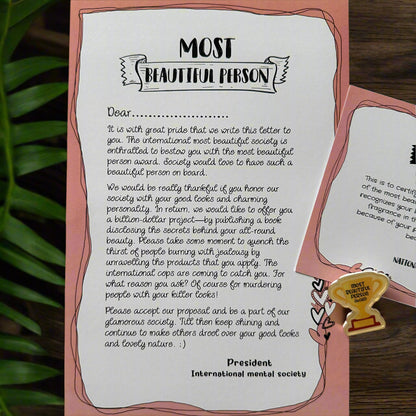 MOST
BEAUTIFUL PERSON
Dear.......................
It is with great pride that we write this letter to
you. The international most beautiful society is
enthralled to bestow you with the most beautiful
person award. Society would love to have such a
beautiful person on board.
We would be really thankful if you honor our
society with your good looks and charming
personality. In return, we would like to offer you
a billion-dollar project—by publishing a book
disclosing the secrets behind your all-round
beauty. Please take some moment to quench the
thirst of people burning with jealousy by
unravelling the products that you apply. The
international cops are coming to catch you. For
what reason you ask? Of course for murdering
people with your killer looks!
Please accept our proposal and be a part of our
glamorous society. Till then keep shining and
continue to make others drool over your good looks
and lovely nature. :)
President
International mental society
This is to certif
of the most beau
recognizes your p
fragrance in s
because of your p
be
NATION
MOST
BEAUTIFUL
PERSON
AWARD